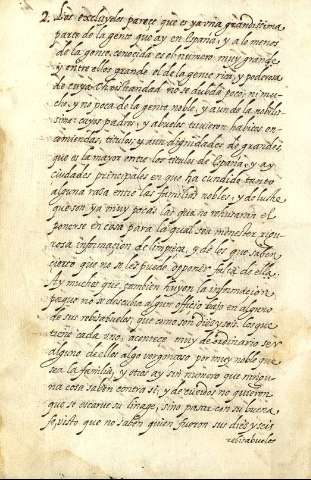 2. Los excluydos parece que es ya una grandissima
parte de la gente que ay en España, y a lo menos
de la gente conocida es el numero muy grande,
y entre ellos grande n. de la gente rica, y poderosa
de cuya Christiandad no se dubda poco, ni mu-
cho, y no poca de la gente noble, y aun de la nobilis-
sima: cuyos padres, y abuelos tuvieron habitos en-
comiendas, titulos, y aun dignidades de grandes
que es la mayor entre los titulos de España, y ay
ciudades principales en que ha cundido tanto
alguna rasa entre las familias nobles, y de lustre
que son ya muy pocas las que no rehusaran el
ponerse en cosa para la qual sea menester rigu-
rosa informacion de limpieça, y de los que saben
cierto que no se les puede opponer falta de ella
Ay muchos que tambien huyen la informacion
porque no se descubra algun officio baxo en alguno
de sus rebisabuelos, que como son diez y seis los que
tiene cada uno, acontece muy de ordinario ser
alguno de ellos algo vergonçoso por muy noble que
sea la familia, y otros ay sin numero que ningu-
na cosa saben contra si, y de cuerdos no quieren
que se escarve su linage, sino passar con su buena
fe, visto que no saben quien fueron sus diez y seis
rebisabuelos